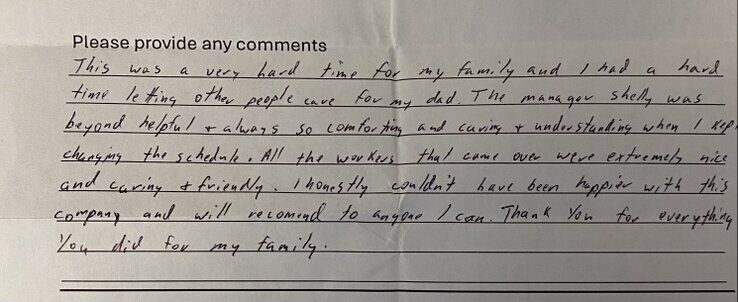 Please provide any comments
This was a very hard time for my family and I had a hard
time letting other people care for my dad. The manager Shelly was
beyond helpful + always so comforting and caring + understanding when I kep
changing the schedule. All the workers that came over were extremely nice
and caring + friendly. I honestly couldn't have been happier with this
company and will recomend to anyone I can. Thank You for everything
You did for my family.